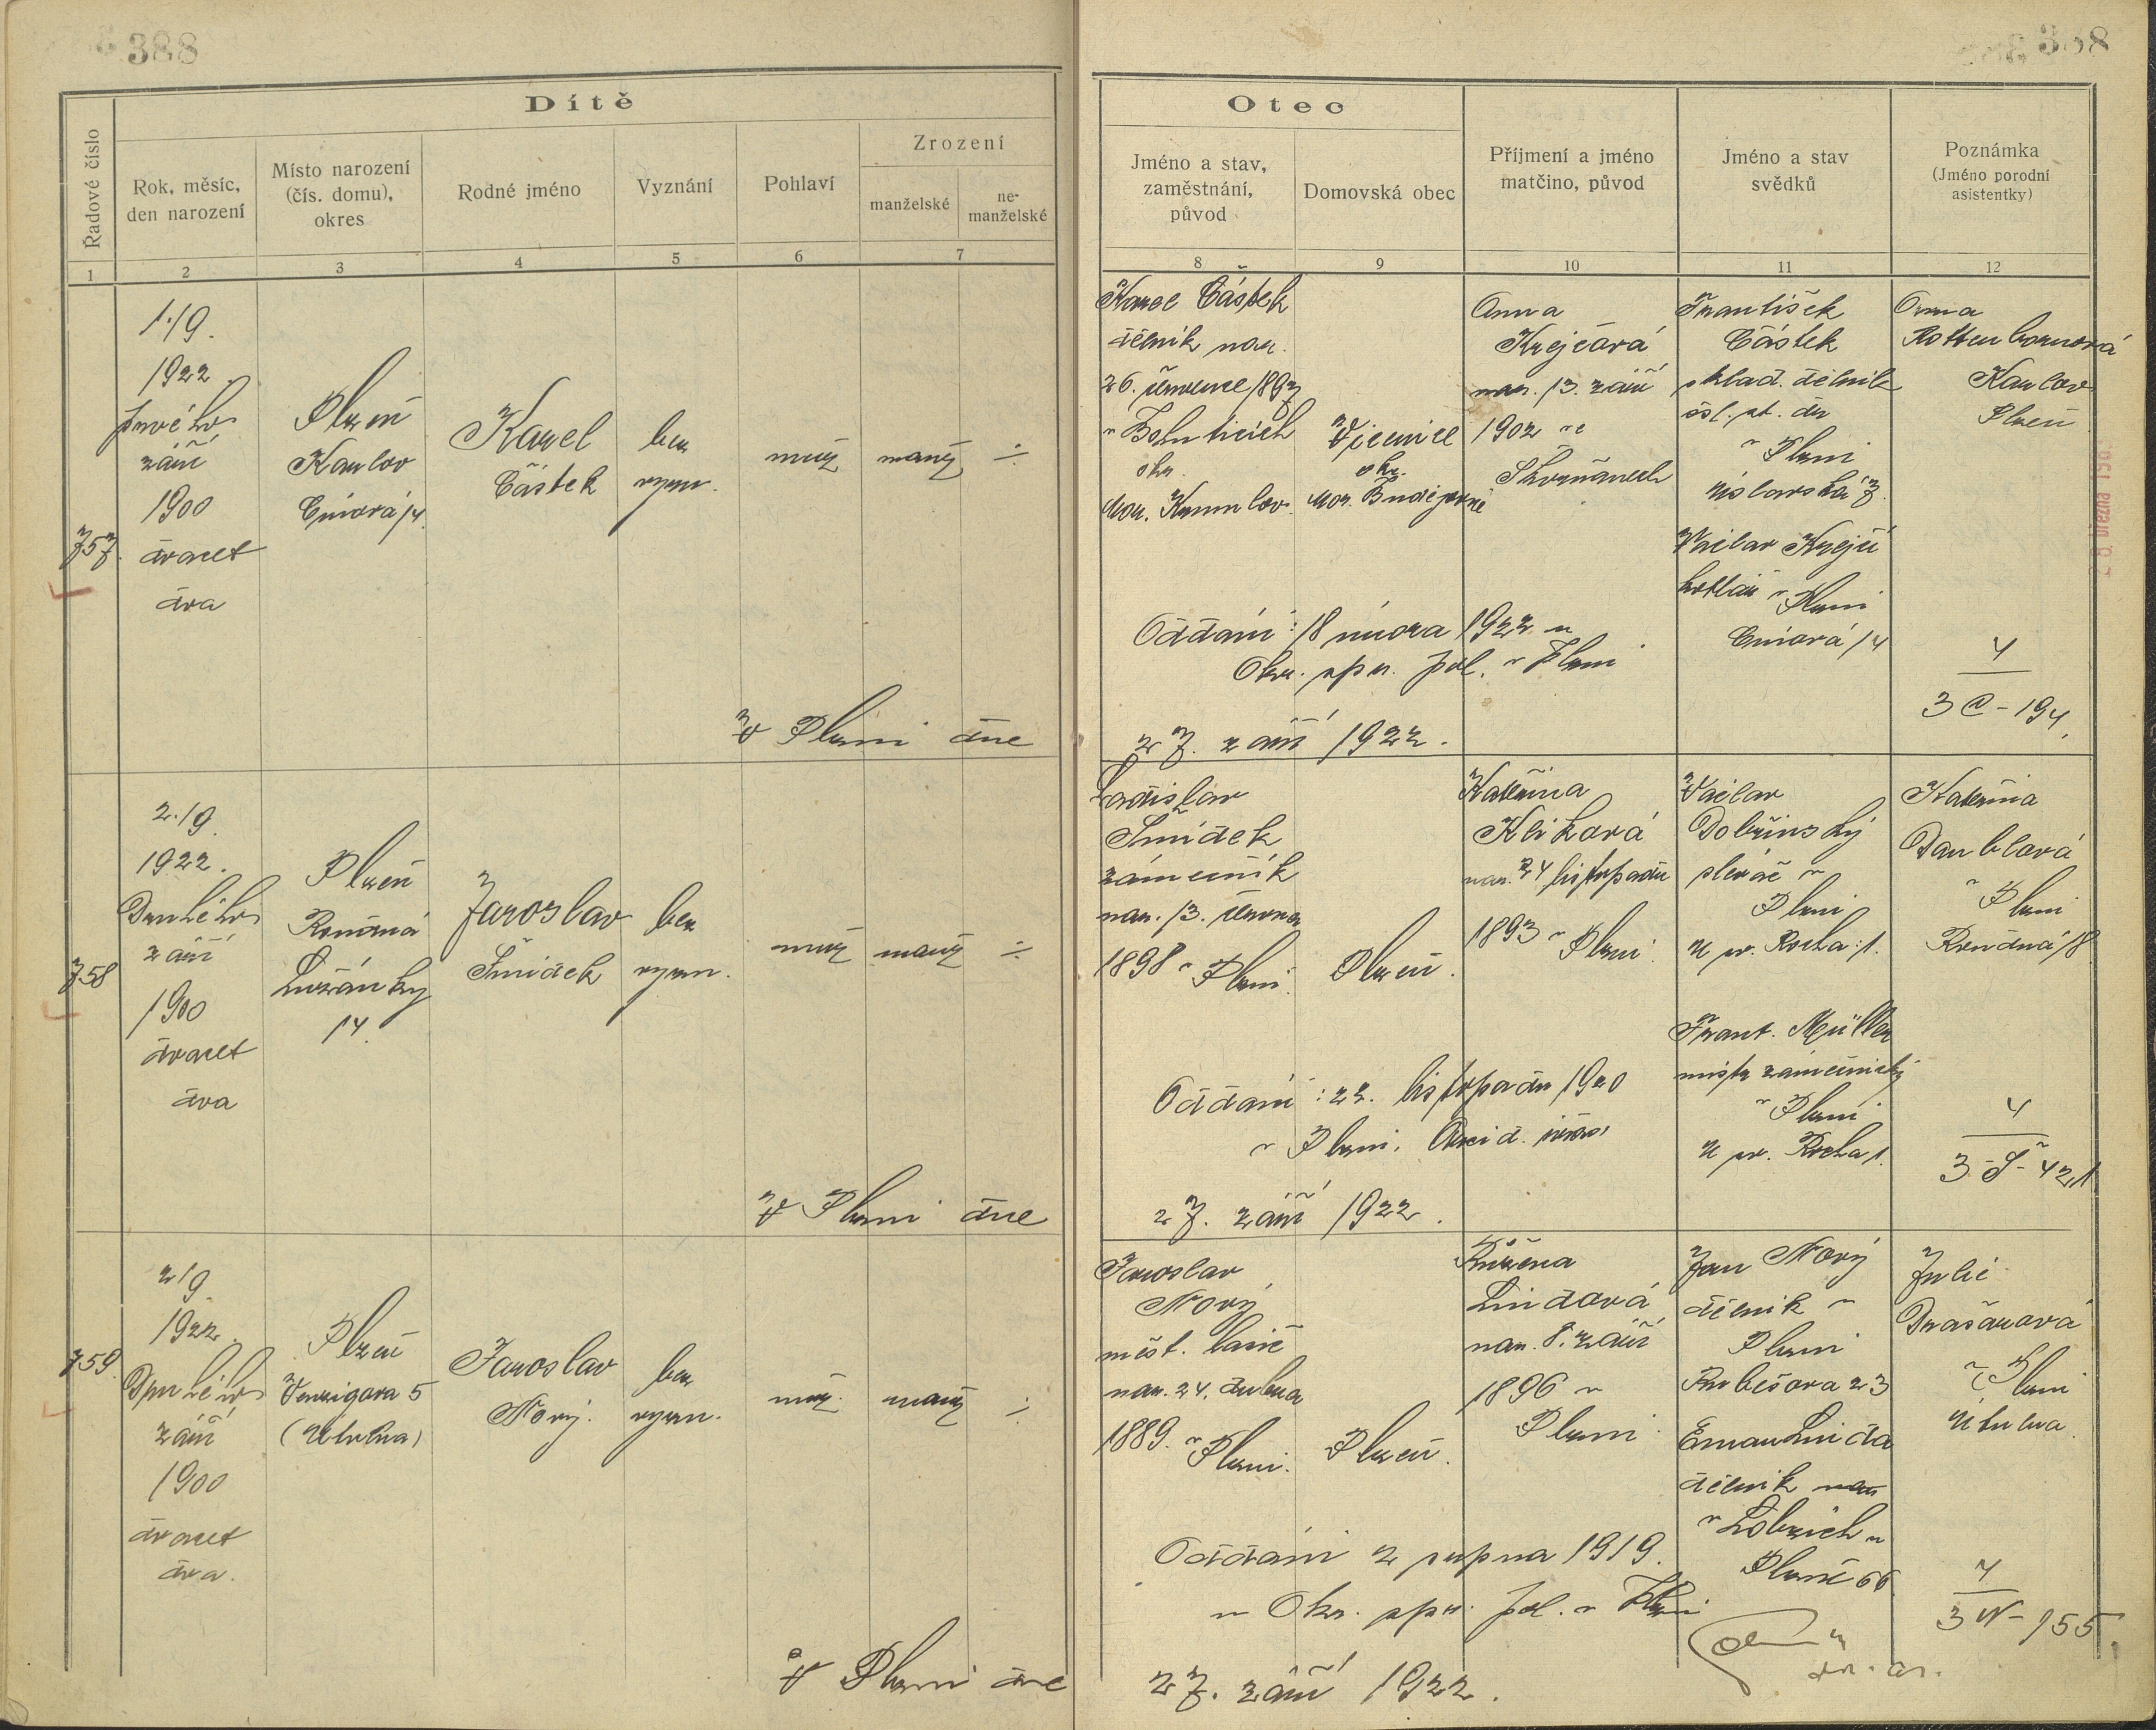 388
388
Dítě
Otec
Řadové číslo
Rok, měsíc,
den narození
Místo narození
(čís. domu),
okres
Rodné jméno
Vyznání
Pohlaví
Zrození
manželské
ne-
manželské
Jméno a stav,
zaměstnání,
původ
Domovská obec
Příjmení a jméno
matčino, původ
Jméno a stav
svědků
Poznámka
(Jméno porodní
asistentky)
1
2
3
4
5
6
7
8
9
10
11
12
757.
1./9.
1922.
prvého
září
1900
dvacet
dva
Plzeň
Karlov
Cmiorá 14.
Karel
Částek
bez
vyzn.
muž
manž
÷
Karel Částek
dělník nar.
26. července 1897
v Bohuticích
okr.
Mor. Krumlov.
Vícenice
okr.
Mor. Budějovice
Anna
Krejčová
nar. 13. září
1902 ve
Skvrňanech
František
Částek
sklad. dělník
čsl. st. dr.
v Plzni
Václav Krejčí
kotlář v Plzni
Cmiorá 14
Anna
Rottenbornová
Karlov
Plzeň
Oddáni: 18 února 1922 u
Okr. spr. pol. v Plzni
4
3 C - 194.
V Plzni dne
27. září 1922.
758
2./9.
1922.
Druhého
září
1900
dvacet
dva
Plzeň
Rondná
Lužánky
14.
Jaroslav
Šmídek
bez
vyzn.
muž
manž
÷
Ladislav
Šmídek
zámečník
nar. 13. června
1898 v Plzni.
Plzeň.
Kateřina
Kliková
nar. 24 listopadu
1893 v Plzni.
Václav
Dobřinský
slévač v
Plzni
U sv. Rocha 1.
Frant. Müller
mistr zámečnický
v Plzni
U sv. Rocha 1.
Kateřina
Daublová
v Plzni
Rondná 18
Oddáni: 22. listopadu 1920
v Plzni.
4
3 - Š - 421
V Plzni dne
27. září 1922.
759.
2/9.
1922.
Druhého
září
1900
dvacet
dva.
Plzeň
Venzigova 5
Jaroslav
Nový.
bez
vyzn.
muž.
manž
÷
Jaroslav
Nový
měst. hasič
nar. 24. dubna
1889. v Plzni.
Plzeň.
Růžena
Lindová
nar. 8. září
1896 v
Plzni.
Jan Nový
dělník v
Plzni
Rubešova 23
Eman Linda
dělník
v Lobzích u
Plzně 66.
Julie
Drašarová
v Plzni
Útulna.
Oddáni 2 srpna 1919.
u Okr. spr. pol. v Plzni
4
3 N - 155.
V Plzni dne
27. září 1922.